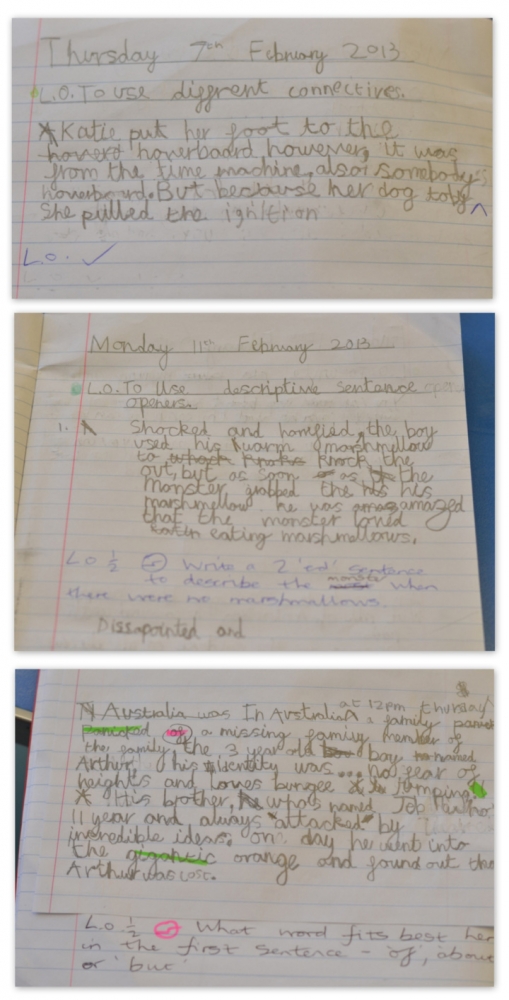 Thursday 7th February 2013
L.O. To use diffrent connectives.
Katie put her foot to the
hoverd hoverboard however, it was
from the time machine, also somebodys
hoverboard. But because her dog toby
She pulled the ignition
L.O. ✓
Monday 11th February 2013
L.O. To Use descriptive sentence
openers.
1. Shocked and horrified, the boy
used his warm marshmallow
to knock the
out, but as soon as the
Monster grabbed the his his
marshmallow. he was amazed
that the monster loved
eating marshmallows.
L.O ½ Write a 2 'ed' sentence
to describe the monster when
there were no marshmallows.
Dissapointed and
Australia was In Australia at 12pm thursday a family
panicked of a missing family member of
the family, the 3 year old boy named
Arthur, his identity was... no fear of
heights and loves bungee jumping
His brother, whos named Job who
11 year and always "attacked" by
incredible ideas. one day he went into
the gigantic orange and found out tha
Arthur was lost.
L.O. ½ What word fits best her
in the first sentence - of, about
or 'but'